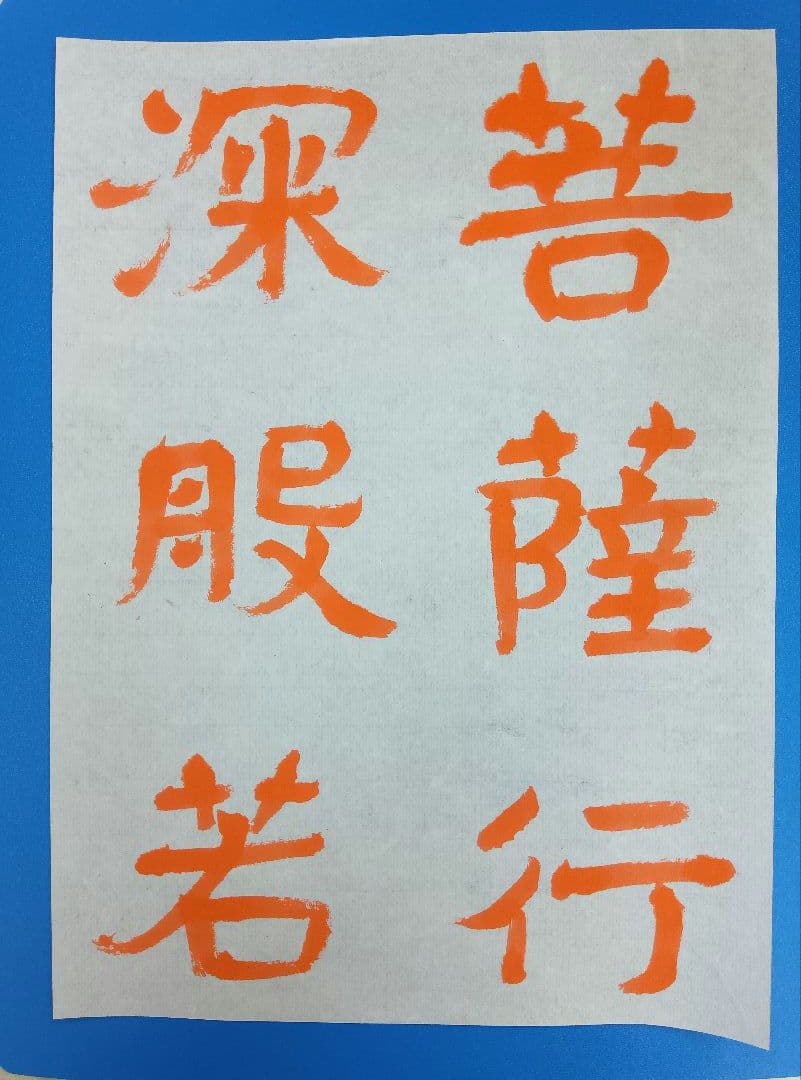 菩薩行
深般若